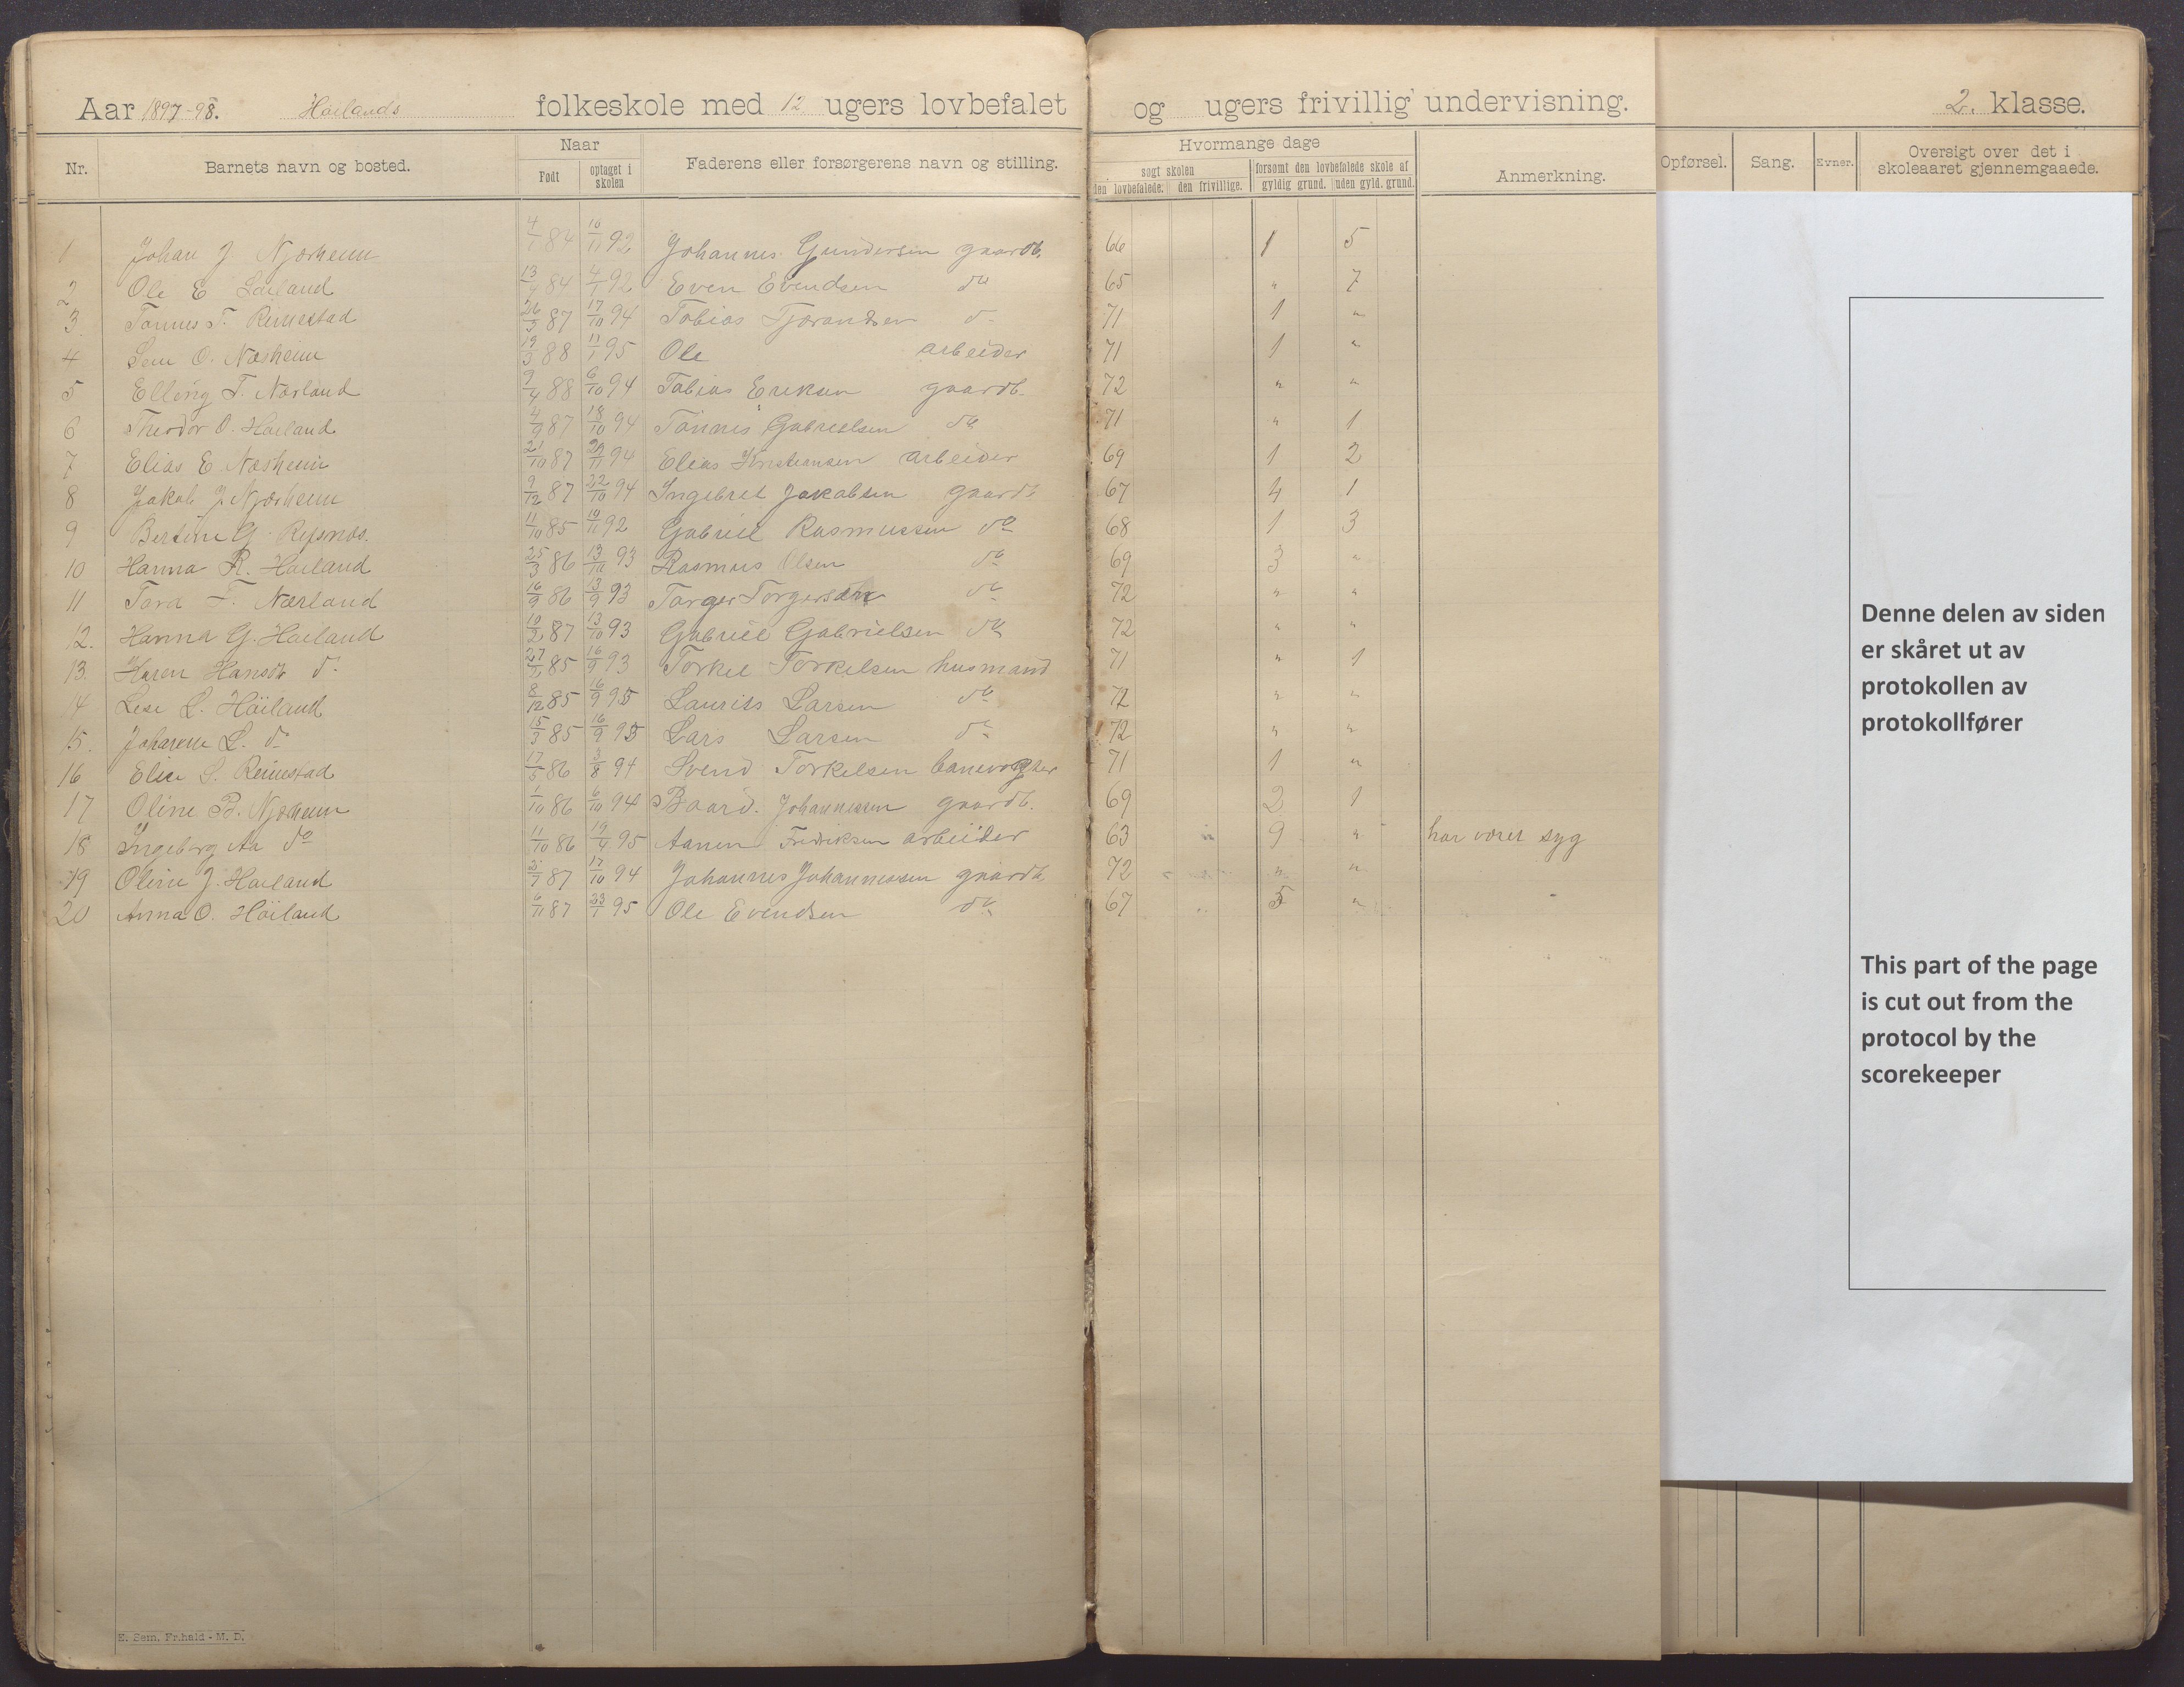 Aar 1897-98. Høilands folkeskole med 12 ugers lovbefalet og ugers frivillig undervisning. 2. klasse.
Nr. Barnets navn og bosted. Naar Født optaget i skolen Faderens eller forsørgerens navn og stilling. Hvormange dage søgt skolen den lovbefalede. den frivillige. forsømt den lovbefalede skole af gyldig grund. uden gyld. grund. Anmerkning. Opførsel. Sang. Evner. Oversigt over det i skoleaaret gjennemgaaede.
1 Johan J. Njærheim 4/1 84 10/11 92 Johannes Gundersen gaardb. 66 1 5
2 Ole E 84 4/1 92 Even Evendsen do 65 " 7
3. Tønnes T. Reimestad 87 17/10 94 Tobias Tjørandsen d- 71 1 "
4 O. Næsheim 88 11/1 95 Ole arbeider 71 1 "
5 Elling T. Nærland 9/4 88 6/10 94 Tobias Eriksen gaardb. 72 " "
6 Theodor O. Høiland 4/9 87 18/10 94 Tønnes Gabrielsen do 71 " 1
7 Elias E. Næsheim 21/10 87 94 Elias Kristiansen arbeider 69 1 2
8 Jakob J. Njærheim 9/12 87 22/10 94 Ingebret Jakobsen gaardb 67 4 1
9 Bertine G. 11/10 85 10/11 92 Gabriel Rasmussen do 68 1 3
10 Hanna R. Høiland 25/3 86 13/10 93 Rasmus Olsen do 69 3 "
11 Tora T. Nærland 16/9 86 13/9 93 Torger Torgersen do 72 " "
12. Hanna G. Høiland 10/2 87 13/10 93 Gabriel Gabrielsen do 72 " "
13. Karen Hansdt d- 85 16/9 93 Torkel Torkelsen husmand 71 " 1
14 L. Høiland 8/12 85 16/9 93 Laurits Larsen do 72 " "
15. Johanne L. d- 15/3 85 16/9 93 Lars Larsen do 72 " "
16 Elise S. Reimestad 17/5 86 3/8 94 Svend Torkelsen banevogter 71 1 "
17 Oline B. Njærheim 1/10 86 6/10 94 Baard Johannessen gaardb. 69 2 1
18 Ingeborg Aa do 11/10 86 19/4 95 Aanen Fredriksen arbeider 63 " 9 " har været syg
19 Oline J. Høiland 87 17/10 94 Johannes Johannessen gaardb. 72 " "
20 Anna O. Høiland 6/11 87 23/1 95 Ole Evendsen do 67 5 "
Denne delen av siden
er skåret ut av
protokollen av
protokollfører
This part of the page
is cut out from the
protocol by the
scorekeeper
E. Sem. Fr.hald - M. D.